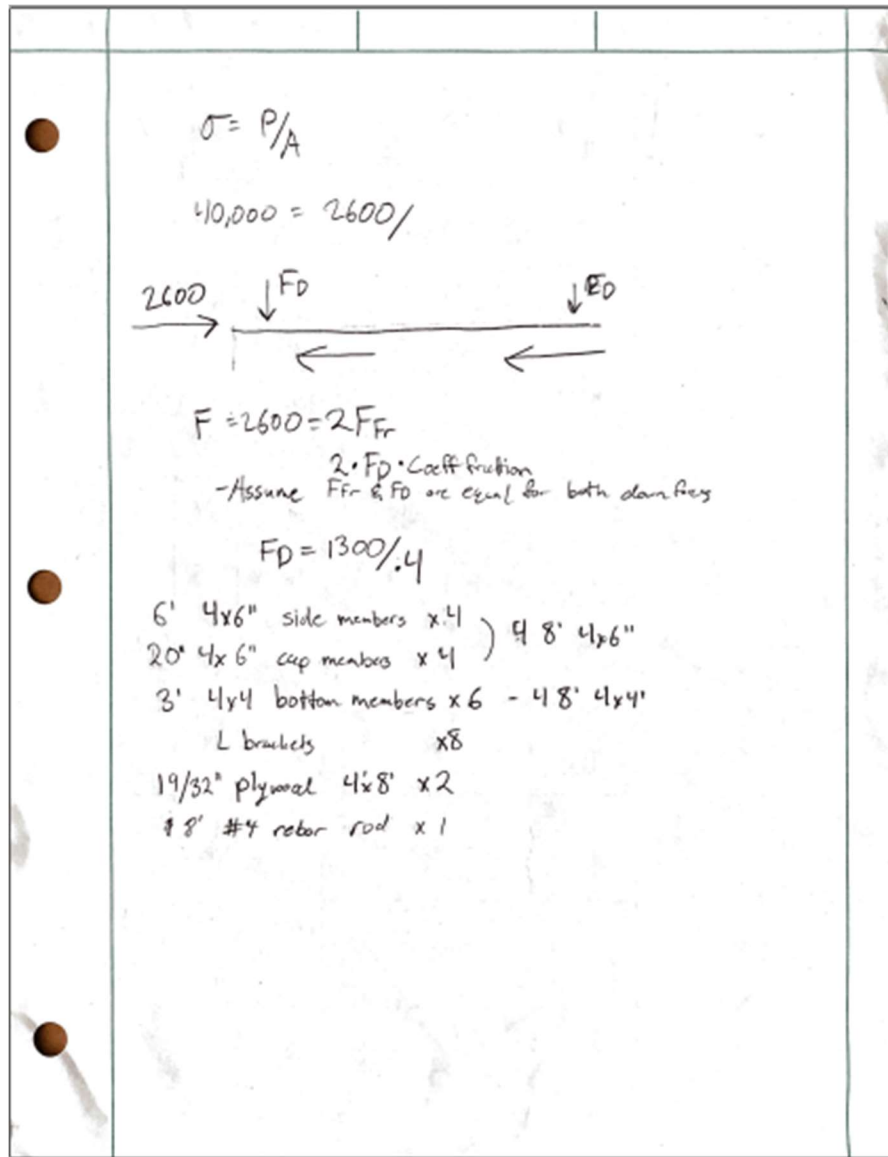 σ = P/A
40,000 = 2600/
2600 F_D F_D
F = 2600 = 2F_Fr
2 · F_D · Coeff friction
- Assume F_Fr & F_D are equal for both down forces
F_D = 1300/.4
6' 4x6" side members x 4 ) 4 8' 4x6"
20" 4x6" cap members x 4
3' 4x4 bottom members x 6 - 4 8' 4x4'
L brackets x8
19/32" plywood 4'x8' x2
8' #4 rebar rod x 1